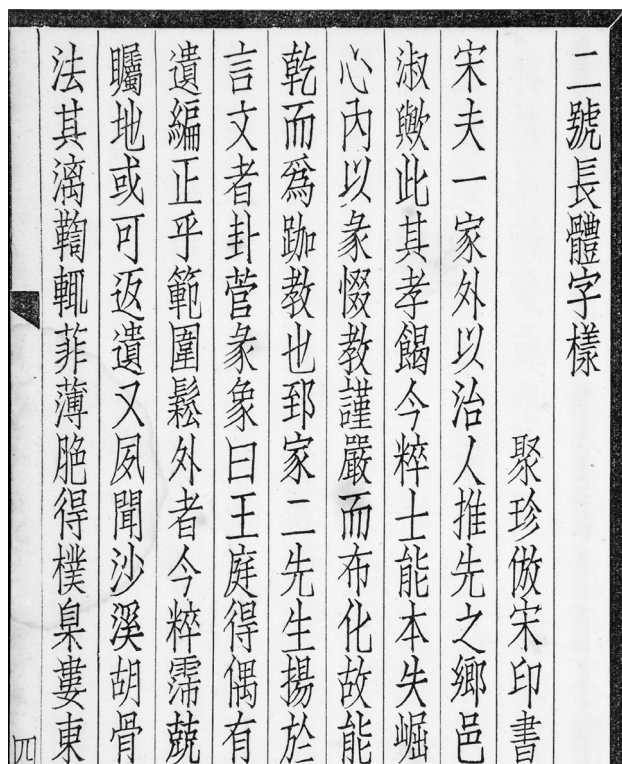 二號長體字樣
聚珍倣宋印書
宋夫一家外以治人推先之鄉邑
淑歟此其孝餲今粹士能本失崛
心內以彖惙教謹嚴而布化故能
乾而爲跏教也郅家二先生揚於
言文者卦菅彖象曰王庭得偶有
遺編正乎範圍鬆外者今粹霈兢
矚地或可返遺又夙聞沙溪胡骨
法其漓鞫輒菲薄脃得樸臬婁東
四